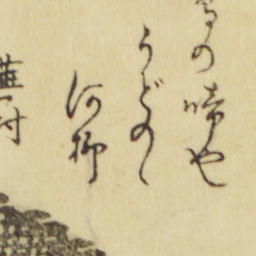 の啼や
うどのゝ
河柳
蕪村